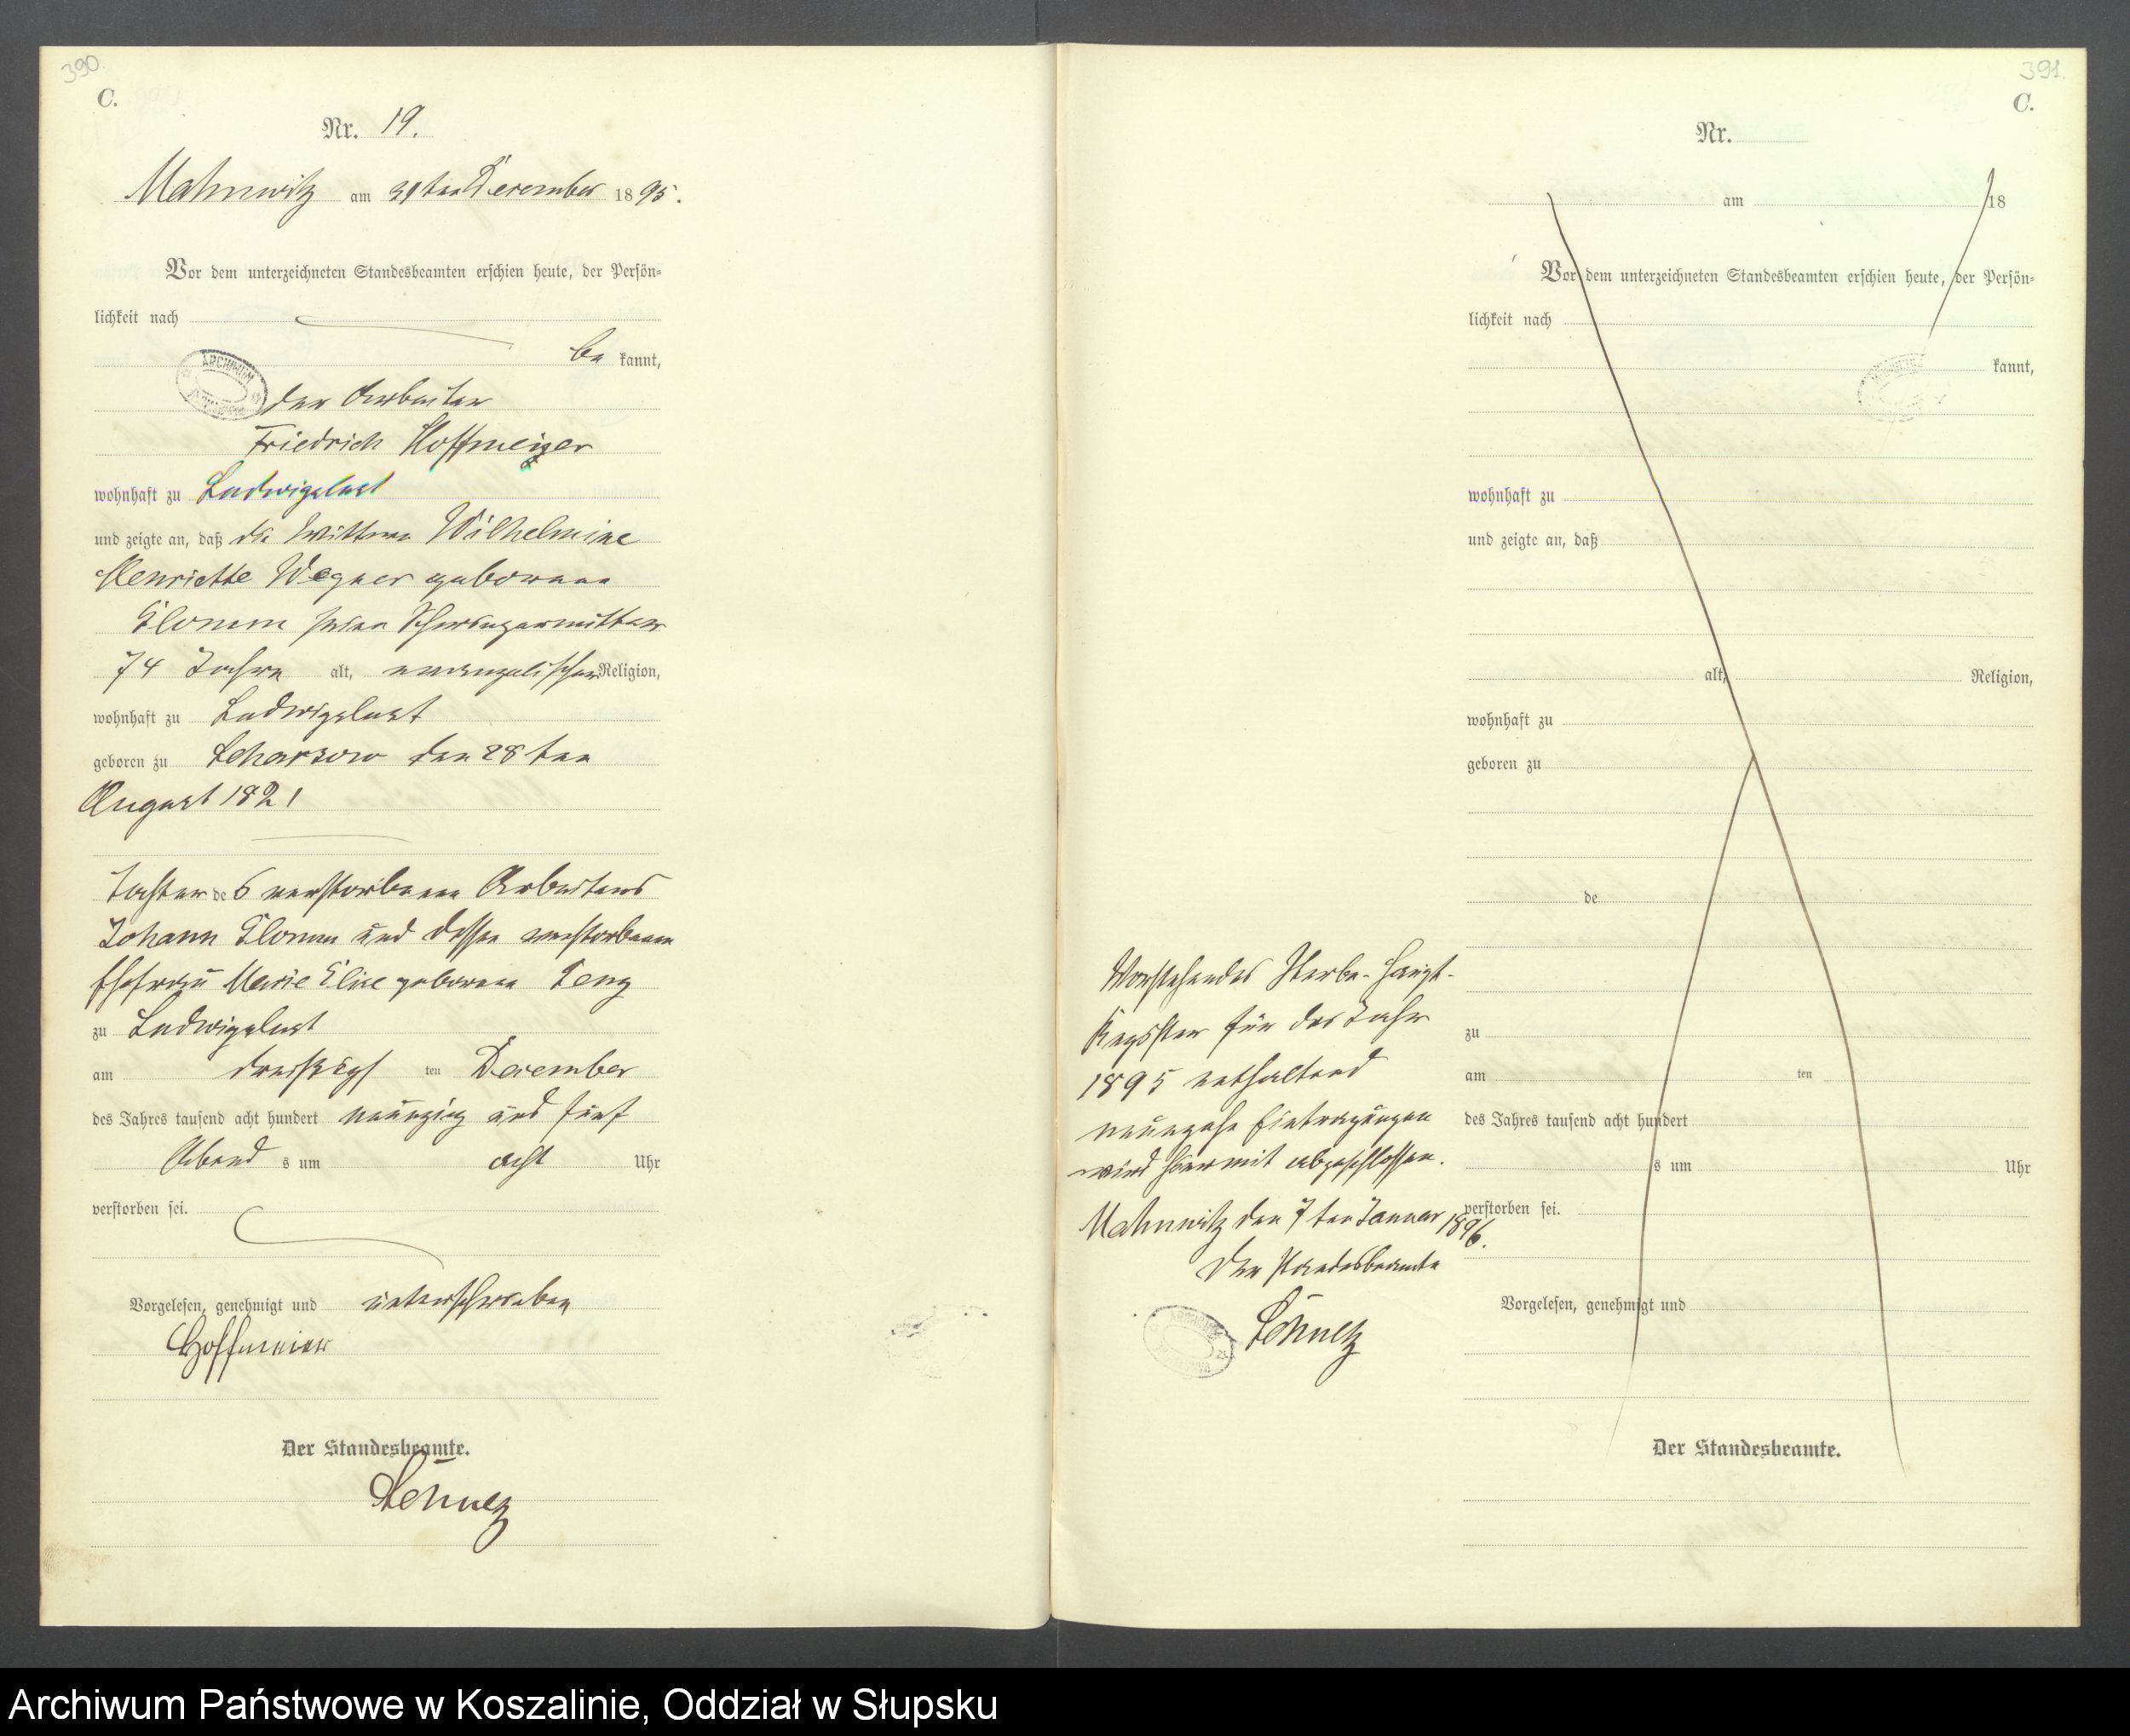 390.
C.
Nr. 19.
Mahnwitz am 31ten December 1895.
Vor dem unterzeichneten Standesbeamten erschien heute, der Persön-
lichkeit nach
be kannt,
der Arbeiter
Friedrich Hoffmeier
wohnhaft zu Ludwigslust
und zeigte an, daß die Wittwe Wilhelmine
Henriette Wegner geborene
Glomm seine Schwiegermutter
74 Jahre alt, evangelischer Religion,
wohnhaft zu Ludwigslust
geboren zu Scharsow den 28ten
August 1821
Tochter des verstorbenen Arbeiters
Johann Glomm und dessen verstorbenen
Ehefrau Marie Elise geborene
zu Ludwigslust
am dreißigsten December
des Jahres tausend acht hundert neunzig und fünf
Abends um acht Uhr
verstorben sei.
Vorgelesen, genehmigt und unterschrieben
Hoffmeier
Der Standesbeamte.
Schulz
391.
C.
Nr.
am 18
Vor dem unterzeichneten Standesbeamten erschien heute, der Persön-
lichkeit nach
kannt,
wohnhaft zu
und zeigte an, daß
alt, Religion,
wohnhaft zu
geboren zu
de
zu
am ten
des Jahres tausend acht hundert
s um Uhr
verstorben sei.
Vorgelesen, genehmigt und
Der Standesbeamte.
Vorstehendes Sterbe-Haupt-
Register für das Jahr
1895 enthaltend
neunzehn Eintragungen
wird hiermit abgeschlossen.
Mahnwitz den 7ten Januar 1896.
Der Standesbeamte
Schulz
Archiwum Państwowe w Koszalinie, Oddział w Słupsku